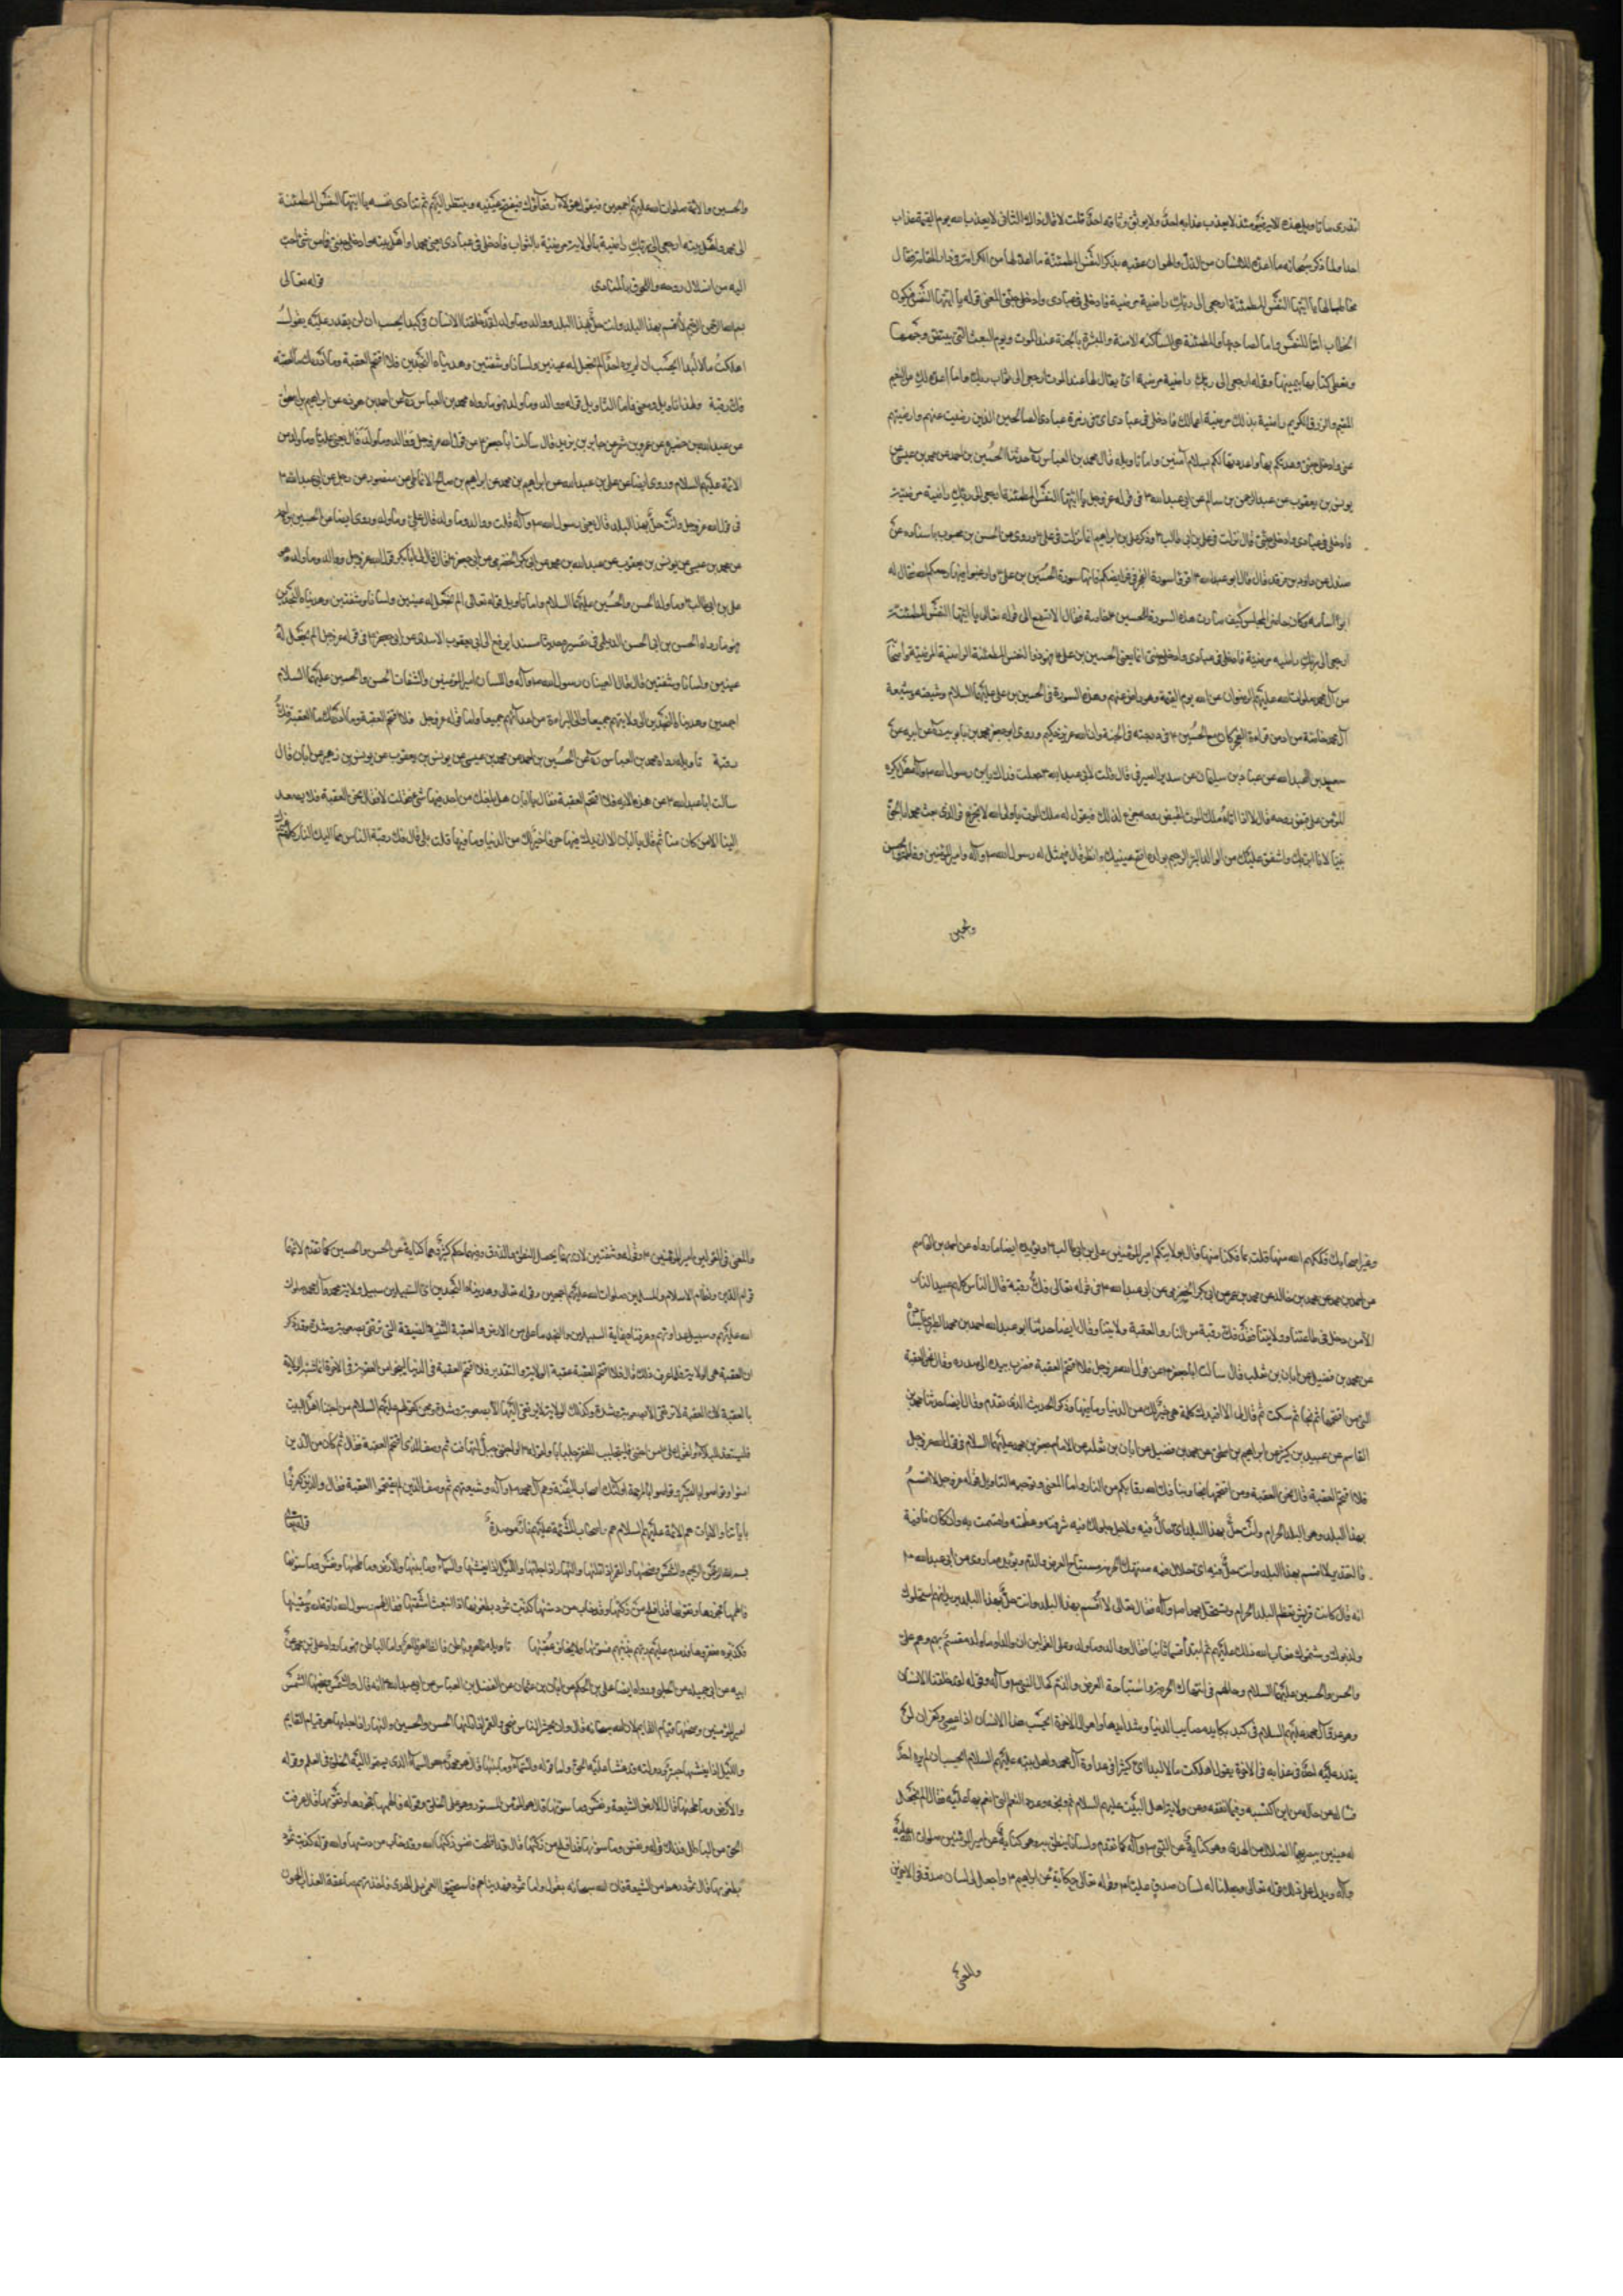 اتدرى ما تاويل هذه الاية فيومئذ لا يعذب عذابه احد ولا يوثق وثاقه احد قلت لا قال ذلك الثانى لا يعذب الله يوم القيمة عذابه
احدا ولما ذكر سبحانه ما اعده للانسان من الذل والهوان عقبه بذكر النفس المطمئنة ما اعد لها من الكرامة فى دار المقامة فقال
مخاطبا لها يا ايتها النفس المطمئنة ارجعى الى ربك راضية مرضية فادخلى فى عبادى وادخلى جنتى المعنى قوله يا ايتها النفس فيكون
الخطاب اما للنفس واما لصاحبها والمطمئنة هى الساكنة الامنة والمبشرة بالجنة عند الموت ويوم البعث التى
وقوله ارجعى الى ربك راضية مرضية اى يقال لها عند الموت ارجعى الى ثواب ربك وما اعده لك من النعيم
المقيم والرزق الكريم راضية بذلك مرضية اعمالك فادخلى فى عبادى اى فى زمرة عبادى الصالحين الذين رضيت عنهم وارضيتهم
عنى وادخلى جنتى واما تاويله قال محمد بن العباس ره حدثنا الحسين بن احمد عن محمد بن عيسى عن
يونس بن يعقوب عن عبد الرحمن بن سالم عن ابى عبد الله ع فى قوله عز وجل يا ايتها النفس المطمئنة ارجعى الى ربك راضية مرضية
فادخلى فى عبادى وادخلى جنتى قال نزلت فى على بن ابى طالب ع وذكر على بن ابراهيم انها نزلت فى على ع وروى عن الحسن بن محبوب باسناده عن
صندل عن داود بن فرقد قال قال ابو عبد الله ع اقرؤا سورة الفجر فى فرايضكم فانها سورة الحسين بن على ع وارغبوا فيها رحمكم الله فقال له
ابو اسامة وكان حاضر المجلس كيف صارت هذه السورة للحسين ع خاصة فقال الا تسمع الى قوله تعالى يا ايتها النفس المطمئنة
ارجعى الى ربك راضية مرضية فادخلى فى عبادى وادخلى جنتى انما يعنى الحسين بن على ع فهو ذو النفس المطمئنة الراضية المرضية واصحابه
من آل محمد صلوات الله عليهم الرضوان عن الله يوم القيمة وهو راض عنهم وهذه السورة فى الحسين بن على عليهما السلام وشيعته وشيعة
آل محمد خاصة من ادمن قراءة الفجر كان مع الحسين ع فى درجته فى الجنة وان الله عزيز حكيم وروى ابو جعفر محمد بن بابويه ره عن ابيه عن
سعد بن عبد الله عن عباد بن سليمان عن سدير الصيرفى قال قلت لابى عبد الله ع جعلت فداك يابن رسول الله ص وآله هل يكره
المؤمن على قبض روحه قال لا اذا اتاه ملك الموت ليقبض روحه جزع لذلك فيقول له ملك الموت يا ولى الله لا تجزع فوالذى بعث محمدا بالحق
نبيا لانا ابر بك واشفق عليك من الوالد البر الرحيم بولده افتح عينيك وانظر قال فيمثل له رسول الله ص وآله وامير المؤمنين وفاطمة والحسن
والحسين
والحسين والائمة صلوات الله عليهم اجمعين فيقول هؤلاء رفقاؤك فيفتح عينيه وينظر اليهم ثم تنادى نفسه يا ايتها النفس المطمئنة
الى محمد واهل بيته ارجعى الى ربك راضية بالولاية مرضية بالثواب فادخلى فى عبادى يعنى محمدا واهل بيته وادخلى جنتى فما من شئ احب
اليه من انسلال روحه واللحوق بالمنادى قوله تعالى
بسم الله الرحمن الرحيم لا اقسم بهذا البلد وانت حل بهذا البلد ووالد وما ولد لقد خلقنا الانسان فى كبد ايحسب ان لن يقدر عليه احد يقول
اهلكت مالا لبدا ايحسب ان لم يره احد الم نجعل له عينين ولسانا وشفتين وهديناه النجدين فلا اقتحم العقبة وما ادريك ما العقبة
فك رقبة ولهذا تاويل ومعنى فاما التاويل قوله ووالد وما ولد هو ما رواه محمد بن العباس ره عن احمد بن هوذه عن ابراهيم بن اسحق
عن عبد الله بن حضيرة عن عمرو بن شمر عن جابر بن يزيد قال سالت ابا جعفر ع عن قول الله عز وجل ووالد وما ولد قال يعنى عليا وما ولد من
الائمة عليهم السلام وروى ايضا عن على بن عبد الله عن ابراهيم بن محمد عن ابراهيم بن صالح الانماطى عن منصور عن رجل عن ابى عبد الله ع
فى قول الله عز وجل وانت حل بهذا البلد قال يعنى رسول الله ص وآله قلت ووالد وما ولد قال على وما ولد وروى ايضا عن الحسين بن احمد
عن محمد بن عيسى عن يونس بن يعقوب عن عبد الله بن محمد عن ابى بكر الحضرمى عن ابى جعفر ع قال قال لى يا ابا بكر قول الله عز وجل ووالد وما ولد هو
على بن ابى طالب ع وما ولد الحسن والحسين عليهما السلام واما تاويل قوله تعالى الم نجعل له عينين ولسانا وشفتين وهديناه النجدين
هو ما رواه الحسن بن ابى الحسن الديلمى فى تفسيره حديثا مسندا يرفع الى ابى يعقوب الاسدى عن ابى جعفر ع فى قوله عز وجل الم نجعل له
عينين ولسانا وشفتين قال قال العينان رسول الله ص وآله واللسان امير المؤمنين والشفتان الحسن والحسين عليهما السلام
اجمعين وهديناه النجدين الى ولايتهم جميعا والى البراءة من اعدائهم جميعا واما قوله عز وجل فلا اقتحم العقبة وما ادريك ما العقبة فك
رقبة تاويله رواه محمد بن العباس ره عن الحسين بن احمد عن محمد بن عيسى عن يونس بن يعقوب عن يونس بن زهير عن ابان قال
سالت ابا عبد الله ع عن هذه الاية فلا اقتحم العقبة فقال يا ابان هل بلغك من احد فيها شئ فقلت لا فقال نحن العقبة فلا يصعد
الينا الا من كان منا ثم قال يا ابان الا ازيدك فيها حرفا خير لك من الدنيا وما فيها قلت بلى قال فك رقبة الناس مماليك النار كلهم
وغير اصحابك فككهم الله منها قلت بما فككنا منها قال بولايتكم امير المؤمنين على بن ابى طالب ع ويؤيده ايضا ما رواه عن احمد بن القاسم
عن احمد بن محمد عن محمد بن خالد عن محمد بن عمير عن ابى بكر الحضرمى عن ابى عبد الله ع فى قوله تعالى فك رقبة قال الناس كلهم عبيد النار
الا من دخل فى طاعتنا وولايتنا فقد فك رقبته من النار والعقبة ولايتنا وقال ايضا حدثنا ابو عبد الله احمد بن محمد الطبرى
عن محمد بن فضيل عن ابان بن تغلب قال سالت ابا جعفر ع عن قول الله عز وجل فلا اقتحم العقبة فضرب بيده الى صدره وقال نحن العقبة
التى من اقتحمها نجا ثم سكت ثم قال لى الا افيدك كلمة هى خير لك من الدنيا وما فيها وذكر الحديث الذى تقدم وقال ايضا حدثنا محمد بن
القاسم عن عبيد بن كثير عن ابراهيم بن اسحق عن محمد بن فضيل عن ابان بن تغلب عن الامام جعفر بن محمد عليهما السلام فى قول الله عز وجل
فلا اقتحم العقبة قال نحن العقبة ومن اقتحمها نجا وبنا فك الله رقابكم من النار واما المعنى وتوجيه التاويل قوله عز وجل لا اقسم
بهذا البلد وهو البلد الحرام وانت حل بهذا البلد اى حال فيه ولاجل حلولك فيه شرفته وعظمته واقسمت به وان كان نافية
فالتقدير لا اقسم بهذا البلد وانت حل فيه اى حلال منه منتهك الحرمة مستباح العرض والدم ويؤيده ما روى عن ابى عبد الله ع
انه قال كانت قريش تعظم البلد الحرام وتستحل محمدا ص وآله فقال تعالى لا اقسم بهذا البلد وانت حل بهذا البلد يريد انهم استحلوك
وكذبوك وشتموك فعاب الله ذلك عليهم ثم ابتدا قسما ثانيا فقال ووالد وما ولد وعلى القولين ان الوالد وما ولد مقسم بهم وهم على
والحسن والحسين عليهما السلام وحالهم فى انتهاك الحرمة واستباحة العرض والدم كحال النبى ص وآله وقوله لقد خلقنا الانسان
وهو عدو آل محمد عليهم السلام فى كبد يكابد مصايب الدنيا وشدايدها واهوال الاخرة ايحسب هذا الانسان اذا عصى وكفر ان لن
يقدر عليه احد فى عذابه فى الاخرة يقول اهلكت مالا لبدا اى كثيرا فى عداوة آل محمد واهل بيته عليهم السلام ايحسب ان لم يره احد
فساله عن ماله من اين اكتسبه وفيما انفقه وعن ولاية اهل البيت عليهم السلام ثم وبخه وعدد النعم التى انعم بها عليه فقال الم نجعل
له عينين يبصر بهما الضلال من الهدى وهو كناية عن النبى ص وآله كما تقدم ولسانا ينطق به وهو كناية عن امير المؤمنين صلوات الله عليه
وآله ويدل على ذلك قوله تعالى وجعلنا له لسان صدق عليا وقوله تعالى حكاية عن ابراهيم ع واجعل لى لسان صدق فى الاخرين
والمعنى
والمعنى فى القولين امير المؤمنين ع وقوله وشفتين لان بهما يحصل النطق والذوق وفيهما حكم كثيرة وهما كناية عن الحسن والحسين كما تقدم لانهما
قوام الدين ونظام الاسلام والمسلمين صلوات الله عليهم اجمعين وقوله تعالى وهديناه النجدين اى السبيلين سبيل ولاية محمد وآل محمد صلوات
الله عليهم وسبيل عداوتهم وعرفناه نهاية السبيلين والنجد ما على من الارض والعقبة الثنية الضيقة التى ترتقى بصعوبة وشدة وقد ذكر
ان العقبة هى الولاية فلا اقتحم العقبة عقبة الولاية والتقدير فلا اقتحم العقبة فى الدنيا لينجو من العقوبة فى الاخرة وانما شبه الولاية
بالعقبة لان العقبة لا ترتقى الا بصعوبة وشدة وكذلك الولاية لا يرتقى اليها الا بصعوبة وشدة كقولهم عليهم السلام من احبنا اهل البيت
فليستعد للبلاء ثم وصف الذى اقتحم العقبة فقال ثم كان من الذين
آمنوا وتواصوا بالصبر وتواصوا بالمرحمة اولئك اصحاب الميمنة وهم آل محمد ص وآله وشيعتهم ثم وصف الذين لم يقتحموا العقبة فقال والذين كفروا
باياتنا والايات هم الائمة عليهم السلام هم اصحاب المشئمة عليهم نار مؤصدة قوله تعالى
بسم الله الرحمن الرحيم والشمس وضحيها والقمر اذا تليها والنهار اذا جليها والليل اذا يغشيها والسماء وما بنيها والارض وما طحيها ونفس وما سويها
فالهمها فجورها وتقويها قد افلح من زكيها وقد خاب من دسيها كذبت ثمود بطغويها اذ انبعث اشقيها فقال لهم رسول الله ناقة الله وسقيها
فكذبوه فعقروها فدمدم عليهم ربهم بذنبهم فسويها ولا يخاف عقبيها تاويله ظاهر وباطن فالظاهر ظاهر واما الباطن فهو ما رواه على بن محمد عن
ابيه عن ابى جميلة عن الحلبى ورواه ايضا على بن الحكم عن ابان بن عثمان عن الفضل بن العباس عن ابى عبد الله ع انه قال والشمس وضحيها الشمس
امير المؤمنين وضحيها قيام القايم لان الله سبحانه قال وان يحشر الناس ضحى والقمر اذا تليها الحسن والحسين والنهار اذا جليها هو قيام القايم
والليل اذا يغشيها حبتر ودولته قد غشا عليه الحق واما قوله والسماء وما بنيها قال هو محمد هو السماء الذى يسموا اليه الخلق فى العلم وقوله
والارض وما طحيها قال الارض الشيعة ونفس وما سويها قال هو المؤمن المستور وهو على الحق وقوله فالهمها فجورها وتقويها قال عرفت
الحق من الباطل فذلك قوله ونفس وما سويها قد افلح من زكيها قال قد افلحت نفس زكيها الله وقد خاب من دسيها الله وقوله كذبت ثمود
بطغويها قال ثمود رهط من الشيعة فان الله سبحانه يقول واما ثمود فهديناهم فاستحبوا العمى على الهدى فاخذتهم صاعقة العذاب الهون